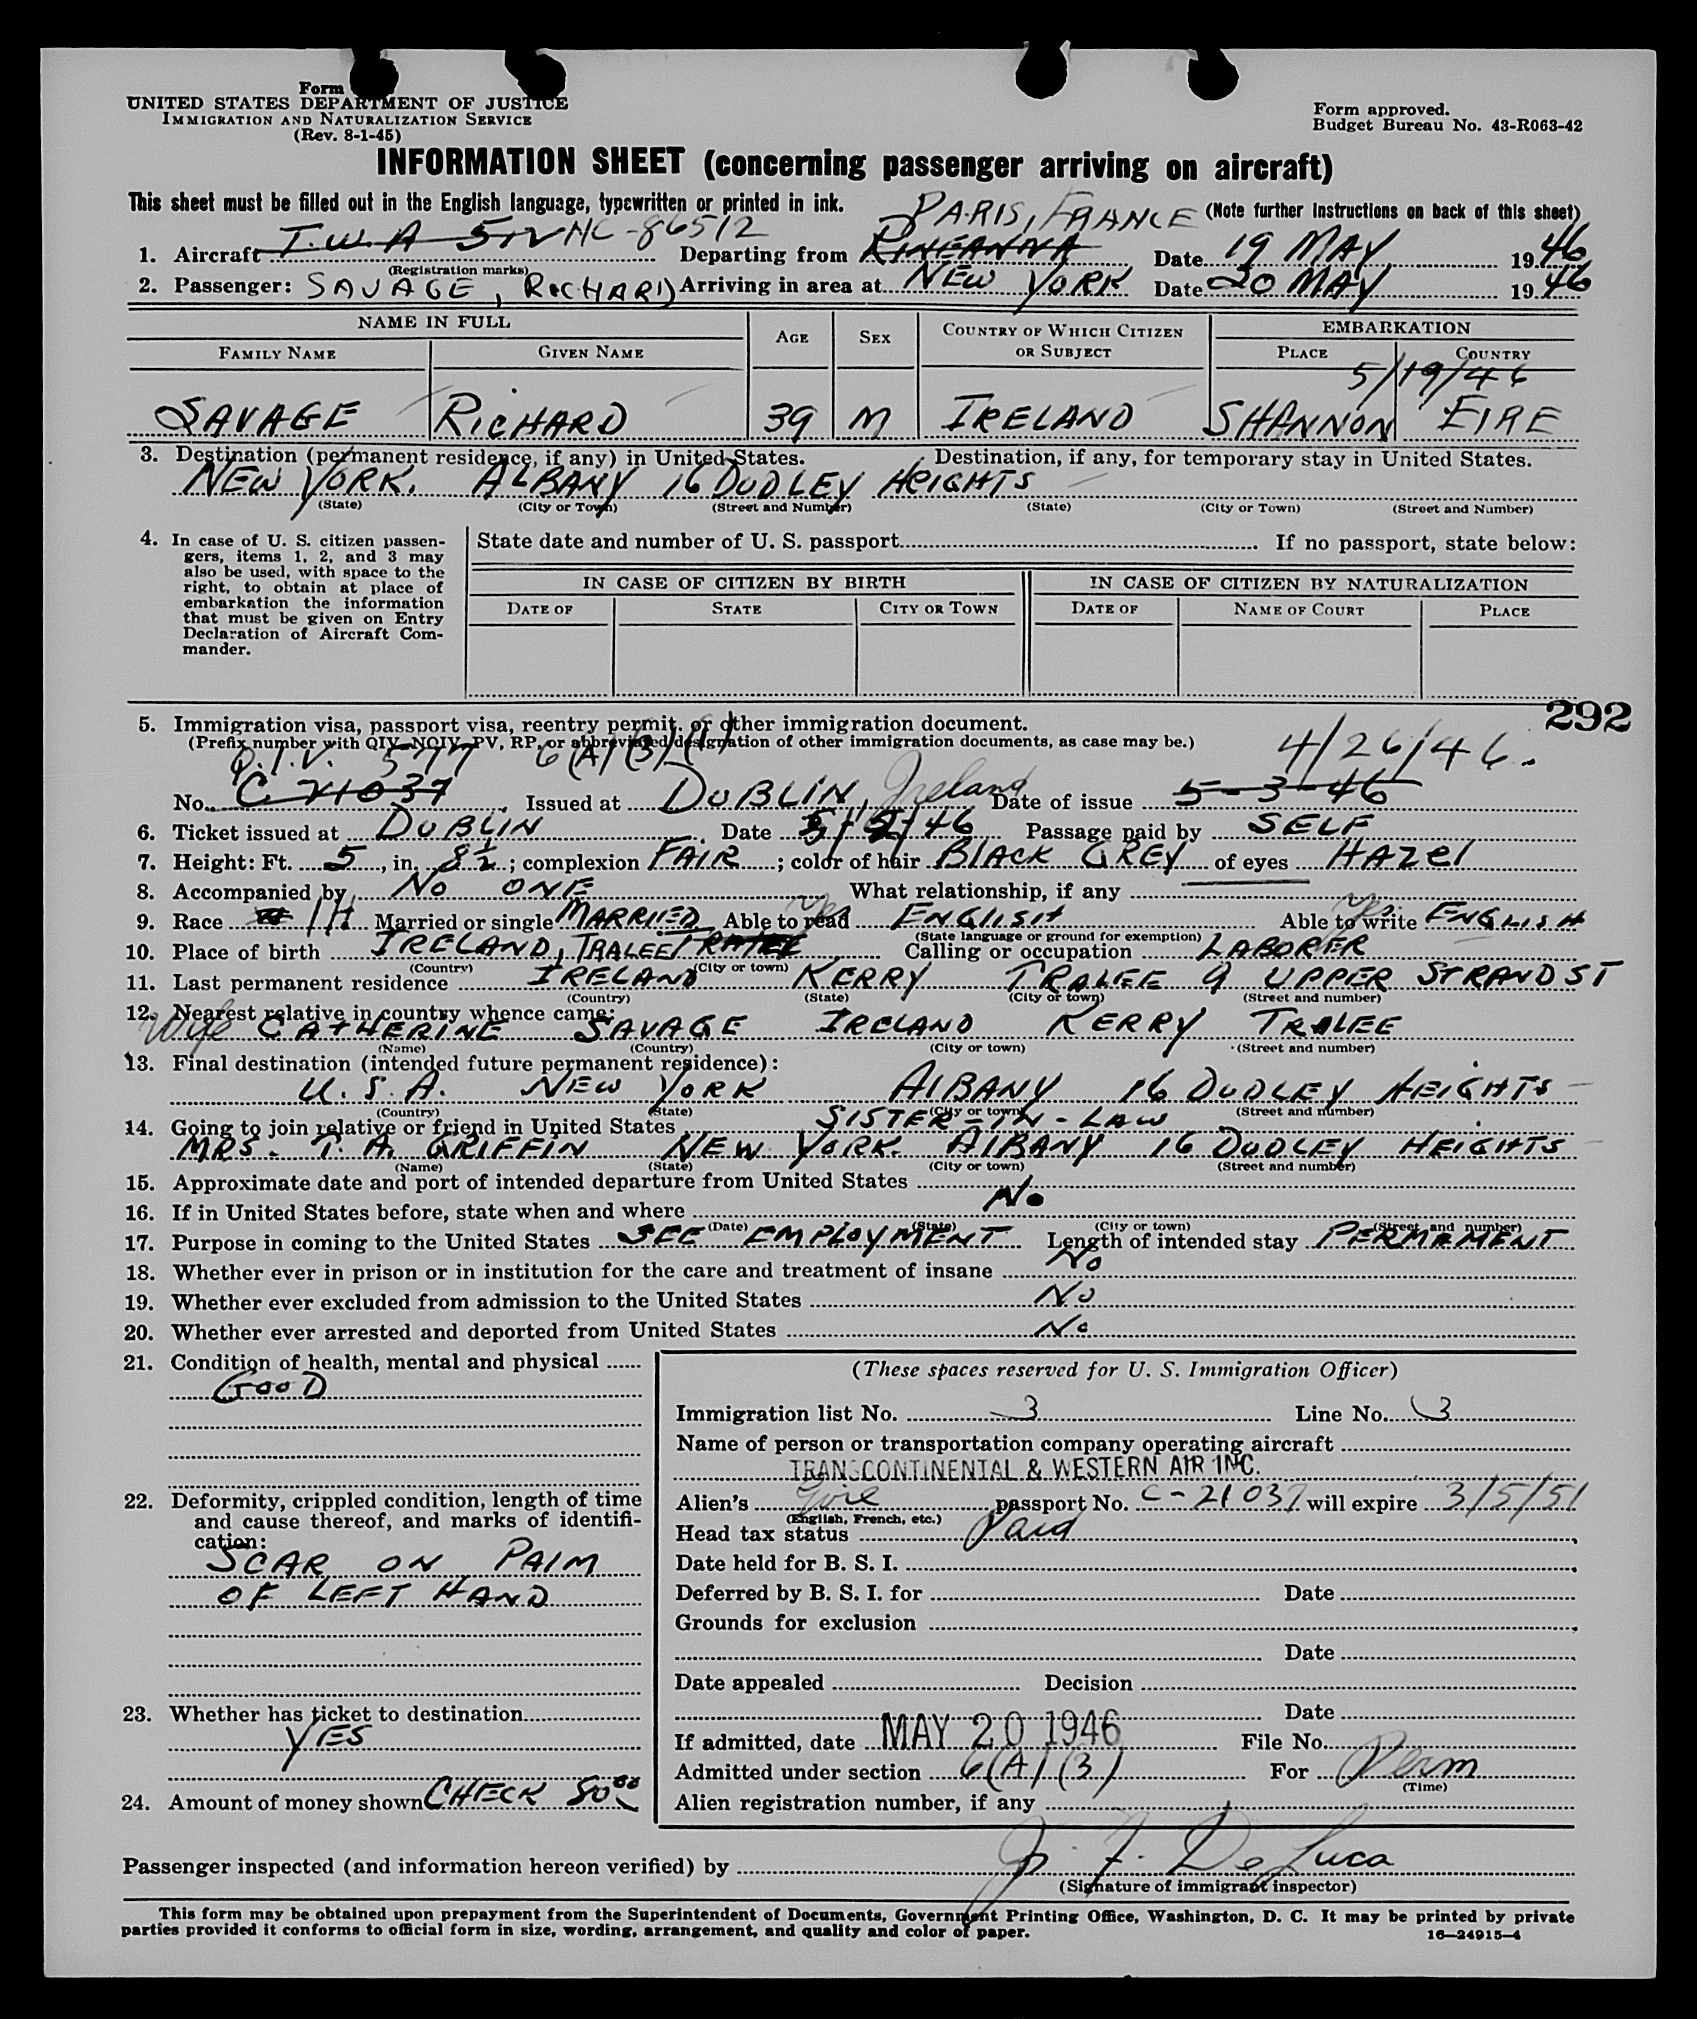 Form
UNITED STATES DEPARTMENT OF JUSTICE
IMMIGRATION AND NATURALIZATION SERVICE
(Rev. 8-1-45)
Form approved.
Budget Bureau No. 43-R063-42
INFORMATION SHEET (concerning passenger arriving on aircraft)
This sheet must be filled out in the English language, typewritten or printed in ink.
PARIS, FRANCE (Note further instructions on back of this sheet)
1. Aircraft T.W.A NC-86512 Departing from RINEANNA Date 19 MAY 1946
(Registration marks)
2. Passenger: SAVAGE, RICHARD Arriving in area at NEW YORK Date 20 MAY 1946
NAME IN FULL AGE SEX COUNTRY OF WHICH CITIZEN OR SUBJECT EMBARKATION
FAMILY NAME GIVEN NAME PLACE COUNTRY
5/19/46
SAVAGE RICHARD 39 M IRELAND SHANNON EIRE
3. Destination (permanent residence, if any) in United States. Destination, if any, for temporary stay in United States.
NEW YORK. ALBANY 16 DUDLEY HEIGHTS
(State) (City or Town) (Street and Number) (State) (City or Town) (Street and Number)
4. In case of U. S. citizen passen-
gers, items 1, 2, and 3 may
also be used, with space to the
right, to obtain at place of
embarkation the information
that must be given on Entry
Declaration of Aircraft Com-
mander.
State date and number of U. S. passport If no passport, state below:
IN CASE OF CITIZEN BY BIRTH IN CASE OF CITIZEN BY NATURALIZATION
DATE OF STATE CITY OR TOWN DATE OF NAME OF COURT PLACE
292
5. Immigration visa, passport visa, reentry permit, or other immigration document.
(Prefix number with QIV, NQIV, PV, RP, or abbreviated designation of other immigration documents, as case may be.)
Q.I.V. 577 6(A)(3)(1) 4/26/46.
No. C 21037 Issued at DUBLIN, Ireland Date of issue 5-3-46
6. Ticket issued at DUBLIN Date 46 Passage paid by SELF
7. Height: Ft. 5, in. 8½; complexion FAIR; color of hair BLACK GREY of eyes HAZEL
8. Accompanied by NO ONE What relationship, if any
9. Race IH Married or single MARRIED Able to read yes ENGLISH Able to write yes ENGLISH
(State language or ground for exemption)
10. Place of birth IRELAND, TRALEE Calling or occupation LABORER
(Country) (City or town)
11. Last permanent residence IRELAND KERRY TRALEE 9 UPPER STRAND ST
(Country) (State) (City or town) (Street and number)
12. Nearest relative in country whence came:
Wife CATHERINE SAVAGE IRELAND KERRY TRALEE
(Name) (Country) (City or town) (Street and number)
13. Final destination (intended future permanent residence):
U.S.A. NEW YORK ALBANY 16 DUDLEY HEIGHTS
(Country) (State) (City or town) (Street and number)
14. Going to join relative or friend in United States SISTER-IN-LAW
MRS. T. A. GRIFFIN NEW YORK. ALBANY 16 DUDLEY HEIGHTS
(Name) (State) (City or town) (Street and number)
15. Approximate date and port of intended departure from United States
16. If in United States before, state when and where No
(Date) (State) (City or town) (Street and number)
17. Purpose in coming to the United States SEE EMPLOYMENT Length of intended stay PERMAMENT
18. Whether ever in prison or in institution for the care and treatment of insane No
19. Whether ever excluded from admission to the United States No
20. Whether ever arrested and deported from United States No
21. Condition of health, mental and physical
GOOD
22. Deformity, crippled condition, length of time
and cause thereof, and marks of identifi-
cation:
SCAR ON PALM
OF LEFT HAND
23. Whether has ticket to destination
YES
24. Amount of money shown CHECK
(These spaces reserved for U. S. Immigration Officer)
Immigration list No. 3 Line No. 3
Name of person or transportation company operating aircraft
TRANSCONTINENTAL & WESTERN AIR INC.
Alien's Eire passport No. C-21037 will expire 3/5/51
(English, French, etc.)
Head tax status Paid
Date held for B. S. I.
Deferred by B. S. I. for Date
Grounds for exclusion
Date
Date appealed Decision
Date
If admitted, date MAY 20 1946 File No.
Admitted under section 6(A)(3) For Perm
(Time)
Alien registration number, if any
Passenger inspected (and information hereon verified) by J. F. De Luca
(Signature of immigrant inspector)
This form may be obtained upon prepayment from the Superintendent of Documents, Government Printing Office, Washington, D. C. It may be printed by private
parties provided it conforms to official form in size, wording, arrangement, and quality and color of paper.
16—24915-4